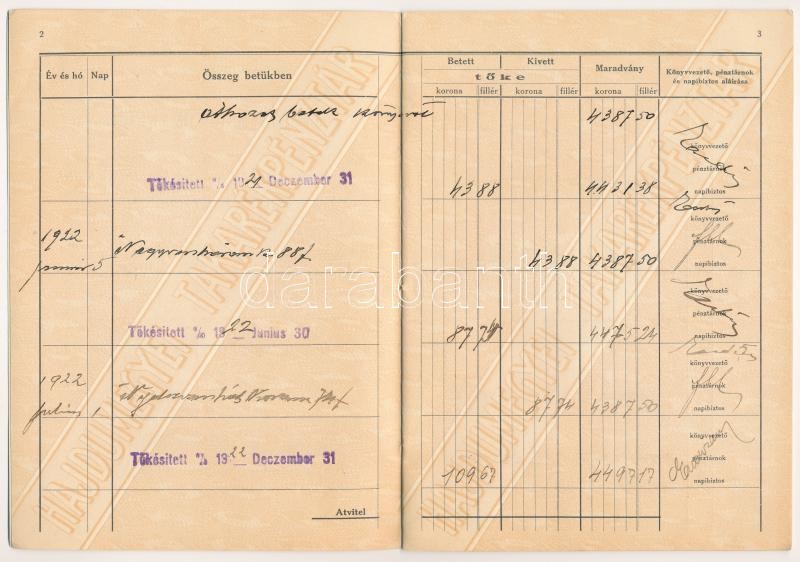 2
3
Év és hó Nap Összeg betükben
Betett Kivett Maradvány Könyvvezető, pénztárnok és napibiztos aláírása
tőke
korona fillér korona fillér korona fillér
betét 4387 50
könyvvezető
pénztárnok
Tőkésitett 1921 Deczember 31 43 88 4431 38
napibiztos
könyvvezető
1922
pénztárnok
junius 5 88 f 43 88 4387 50
napibiztos
könyvvezető
pénztárnok
Tőkésitett 1922 Junius 30 87 74 4475 24
napibiztos
könyvvezető
1922
pénztárnok
julius 1 87 74 4387 50
napibiztos
könyvvezető
Tőkésitett 1922 Deczember 31
pénztárnok
109 67 4497 17
napibiztos
Atvitel
HAJDUMEGYEI TAKARÉKPÉNZTÁR
HAJDUMEGYEI TAKARÉKPÉNZTÁR
darabanth